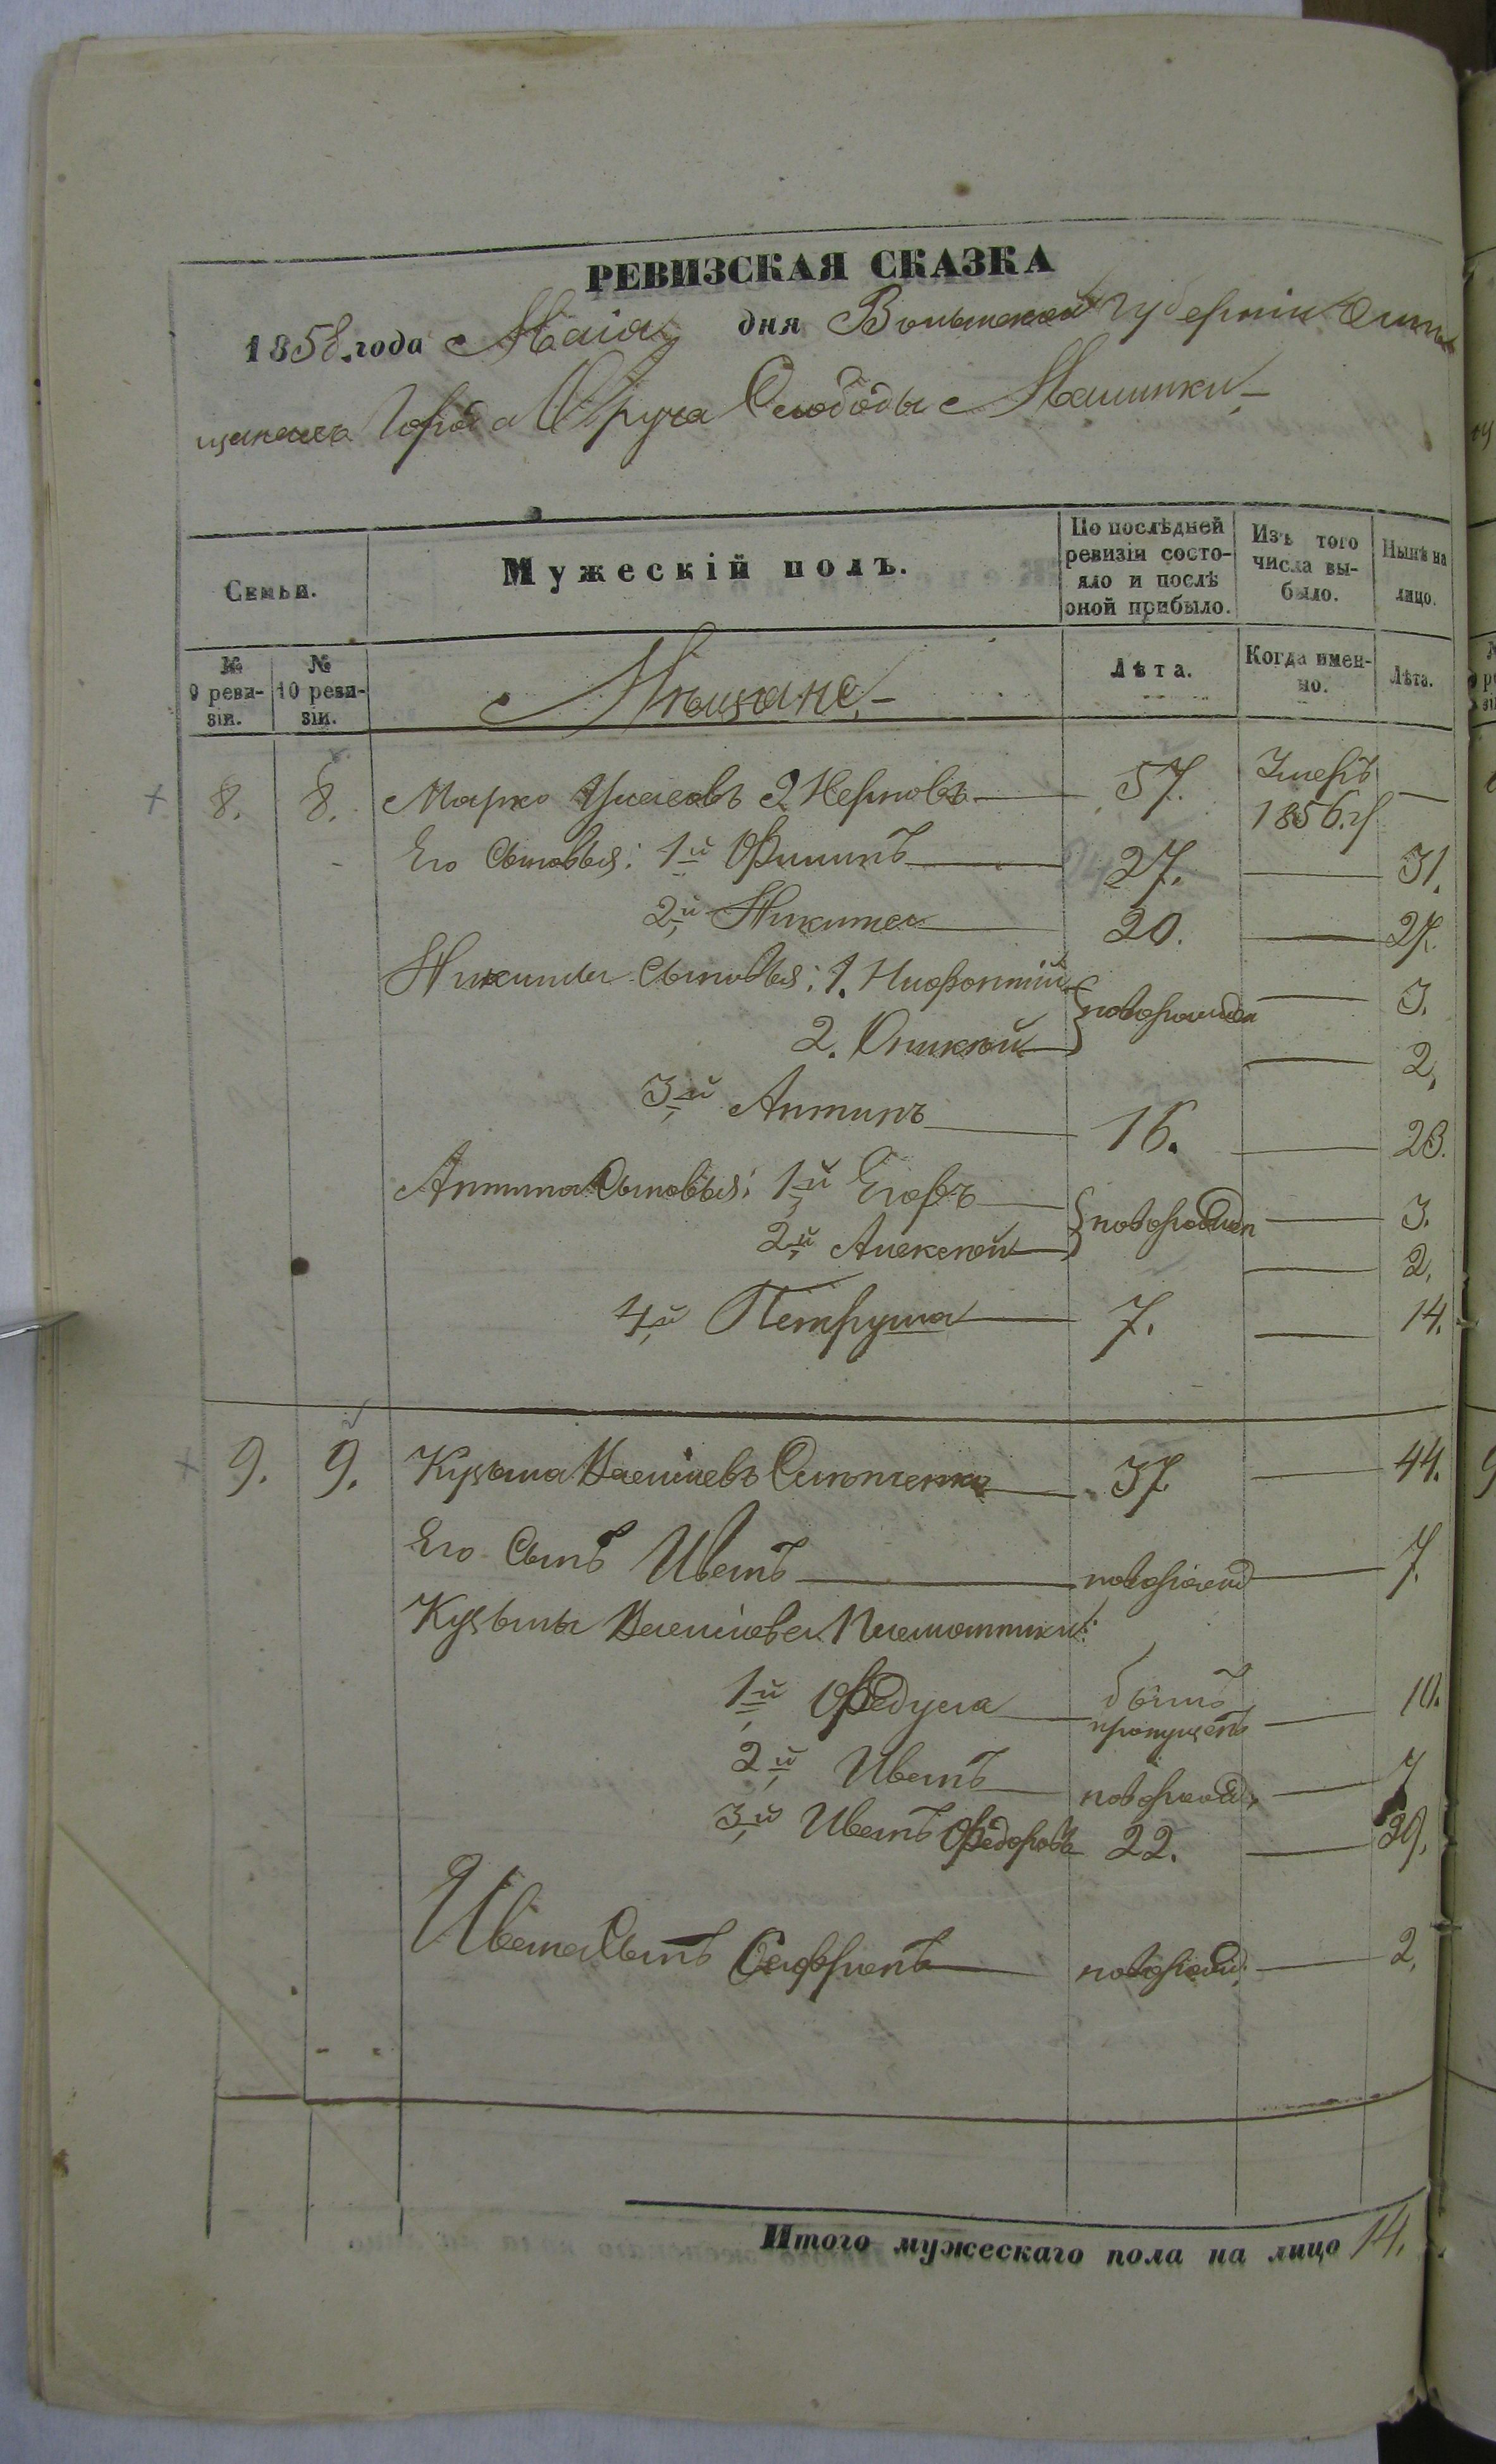 РЕВИЗСКАЯ СКАЗКА
1858 года Маія дня Волынской губерніи
города Овруча Слободы Машики
Семьи.
Мужескій полъ.
По послѣдней ревизіи состояло и послѣ оной прибыло.
Изъ того числа выбыло.
Нынѣ на лицо.
№ 9 ревизіи.
№ 10 ревизіи.
Мѣщане
Лѣта.
Когда именно.
Лѣта.
8. 8. Марко 57. Умеръ 1856. —
Его Сыновья: 1й Филипъ 27. 31.
2й Никита 20. 27.
Никиты Сыновья: 1. Нифонтій новорожден 3.
2. 2.
3й Антипъ 16. 23.
Антипа Сыновья: 1й Егоръ новорожден 3.
2й Алексѣй 2.
4й Петруша 7. 14.
9. 9. Кузьма 37 44.
Его Сынъ Иванъ новорожд 7.
Кузьмы Племянники:
1й Федула былъ пропущенъ 10.
2й Иванъ новорожд. 7
3й Иванъ Федоровъ 22. 29.
Ивана Сынъ новорожд. 2.
Итого мужескаго пола на лицо 14.